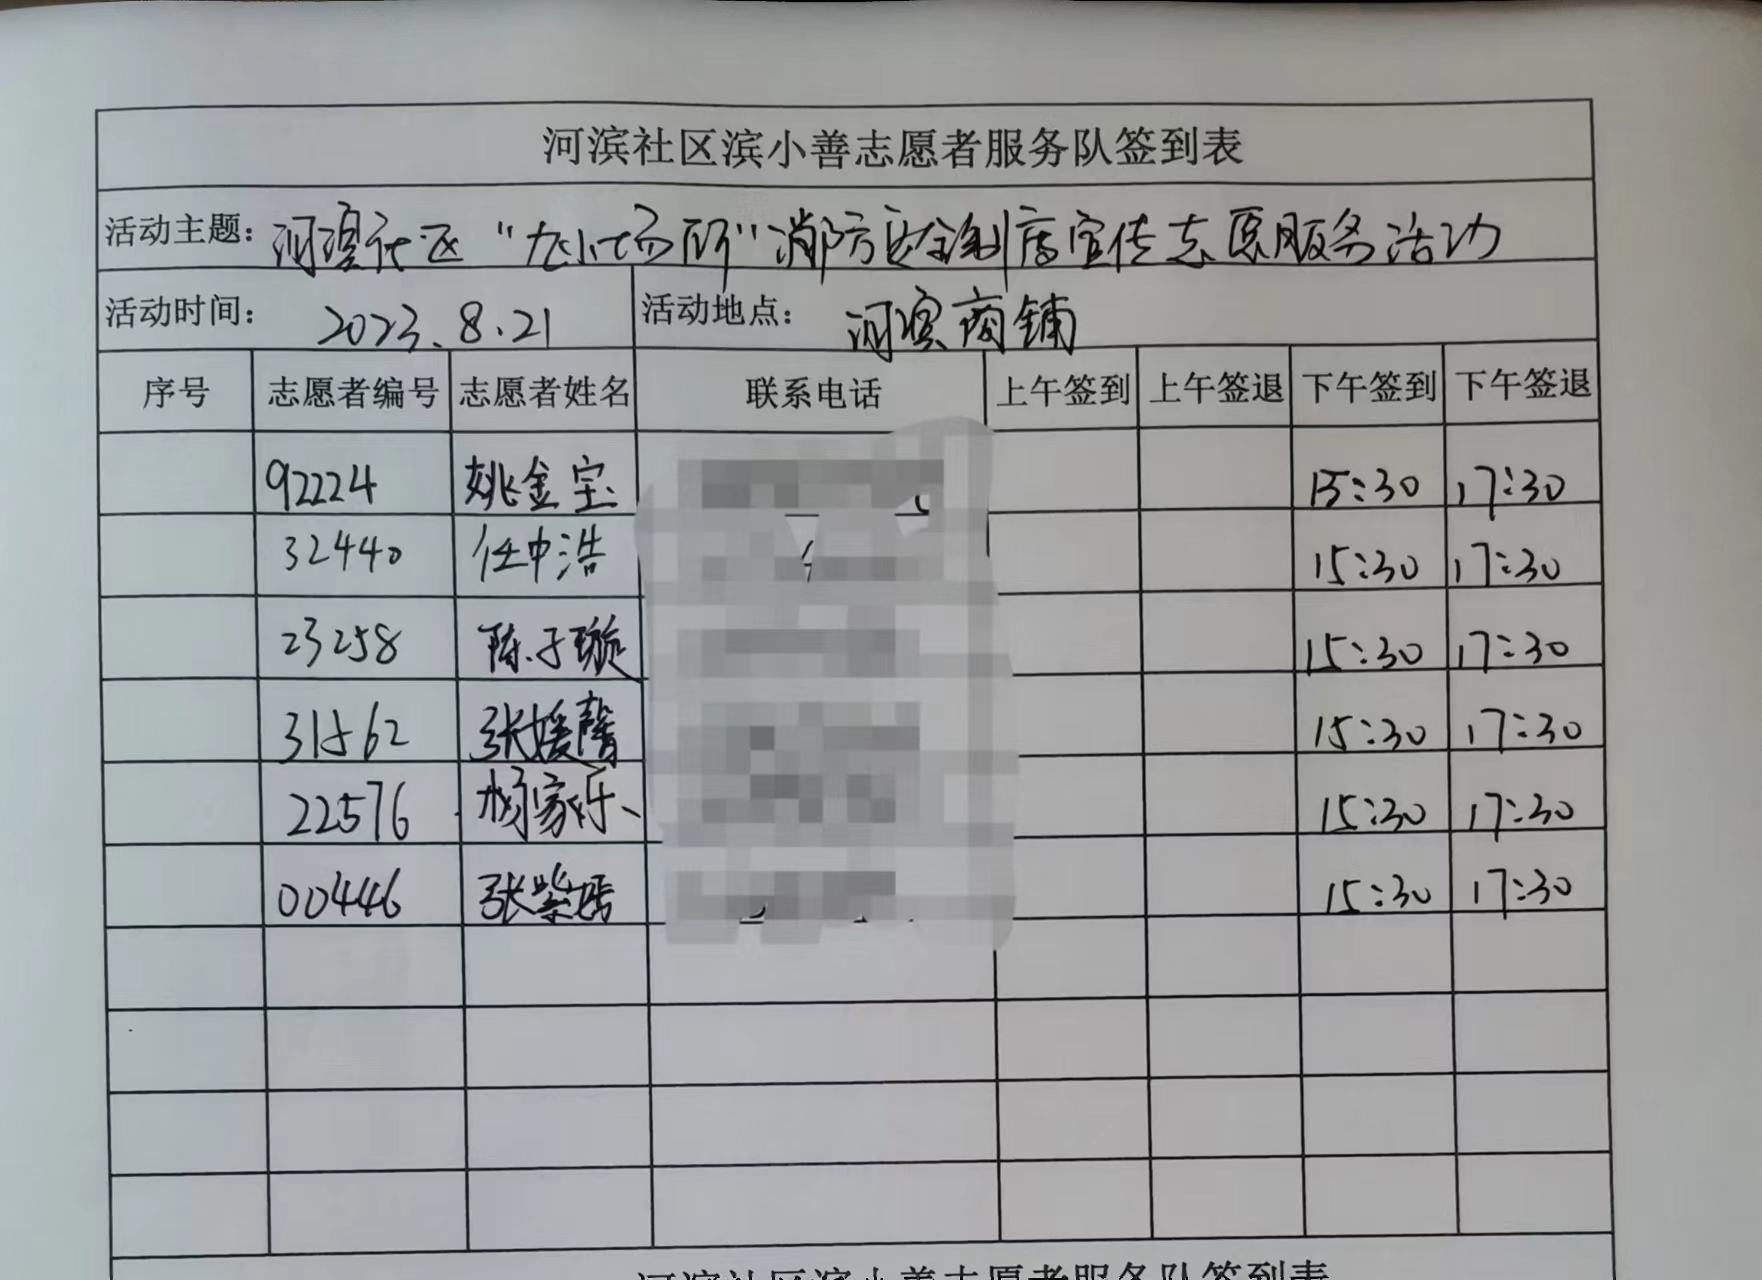 河滨社区滨小善志愿者服务队签到表
活动主题：河滨社区“九小场所”消防安全制度宣传志愿服务活动
活动时间： 2023.8.21 活动地点： 河滨商铺
序号 志愿者编号 志愿者姓名 联系电话 上午签到 上午签退 下午签到 下午签退
92224 姚金宝 15:30 17:30
32440 任中浩 15:30 17:30
23258 陈子璇 15:30 17:30
31562 张媛馨 15:30 17:30
22576 杨家乐 15:30 17:30
00446 张紫嫣 15:30 17:30
河滨社区滨小善志愿者服务队签到表